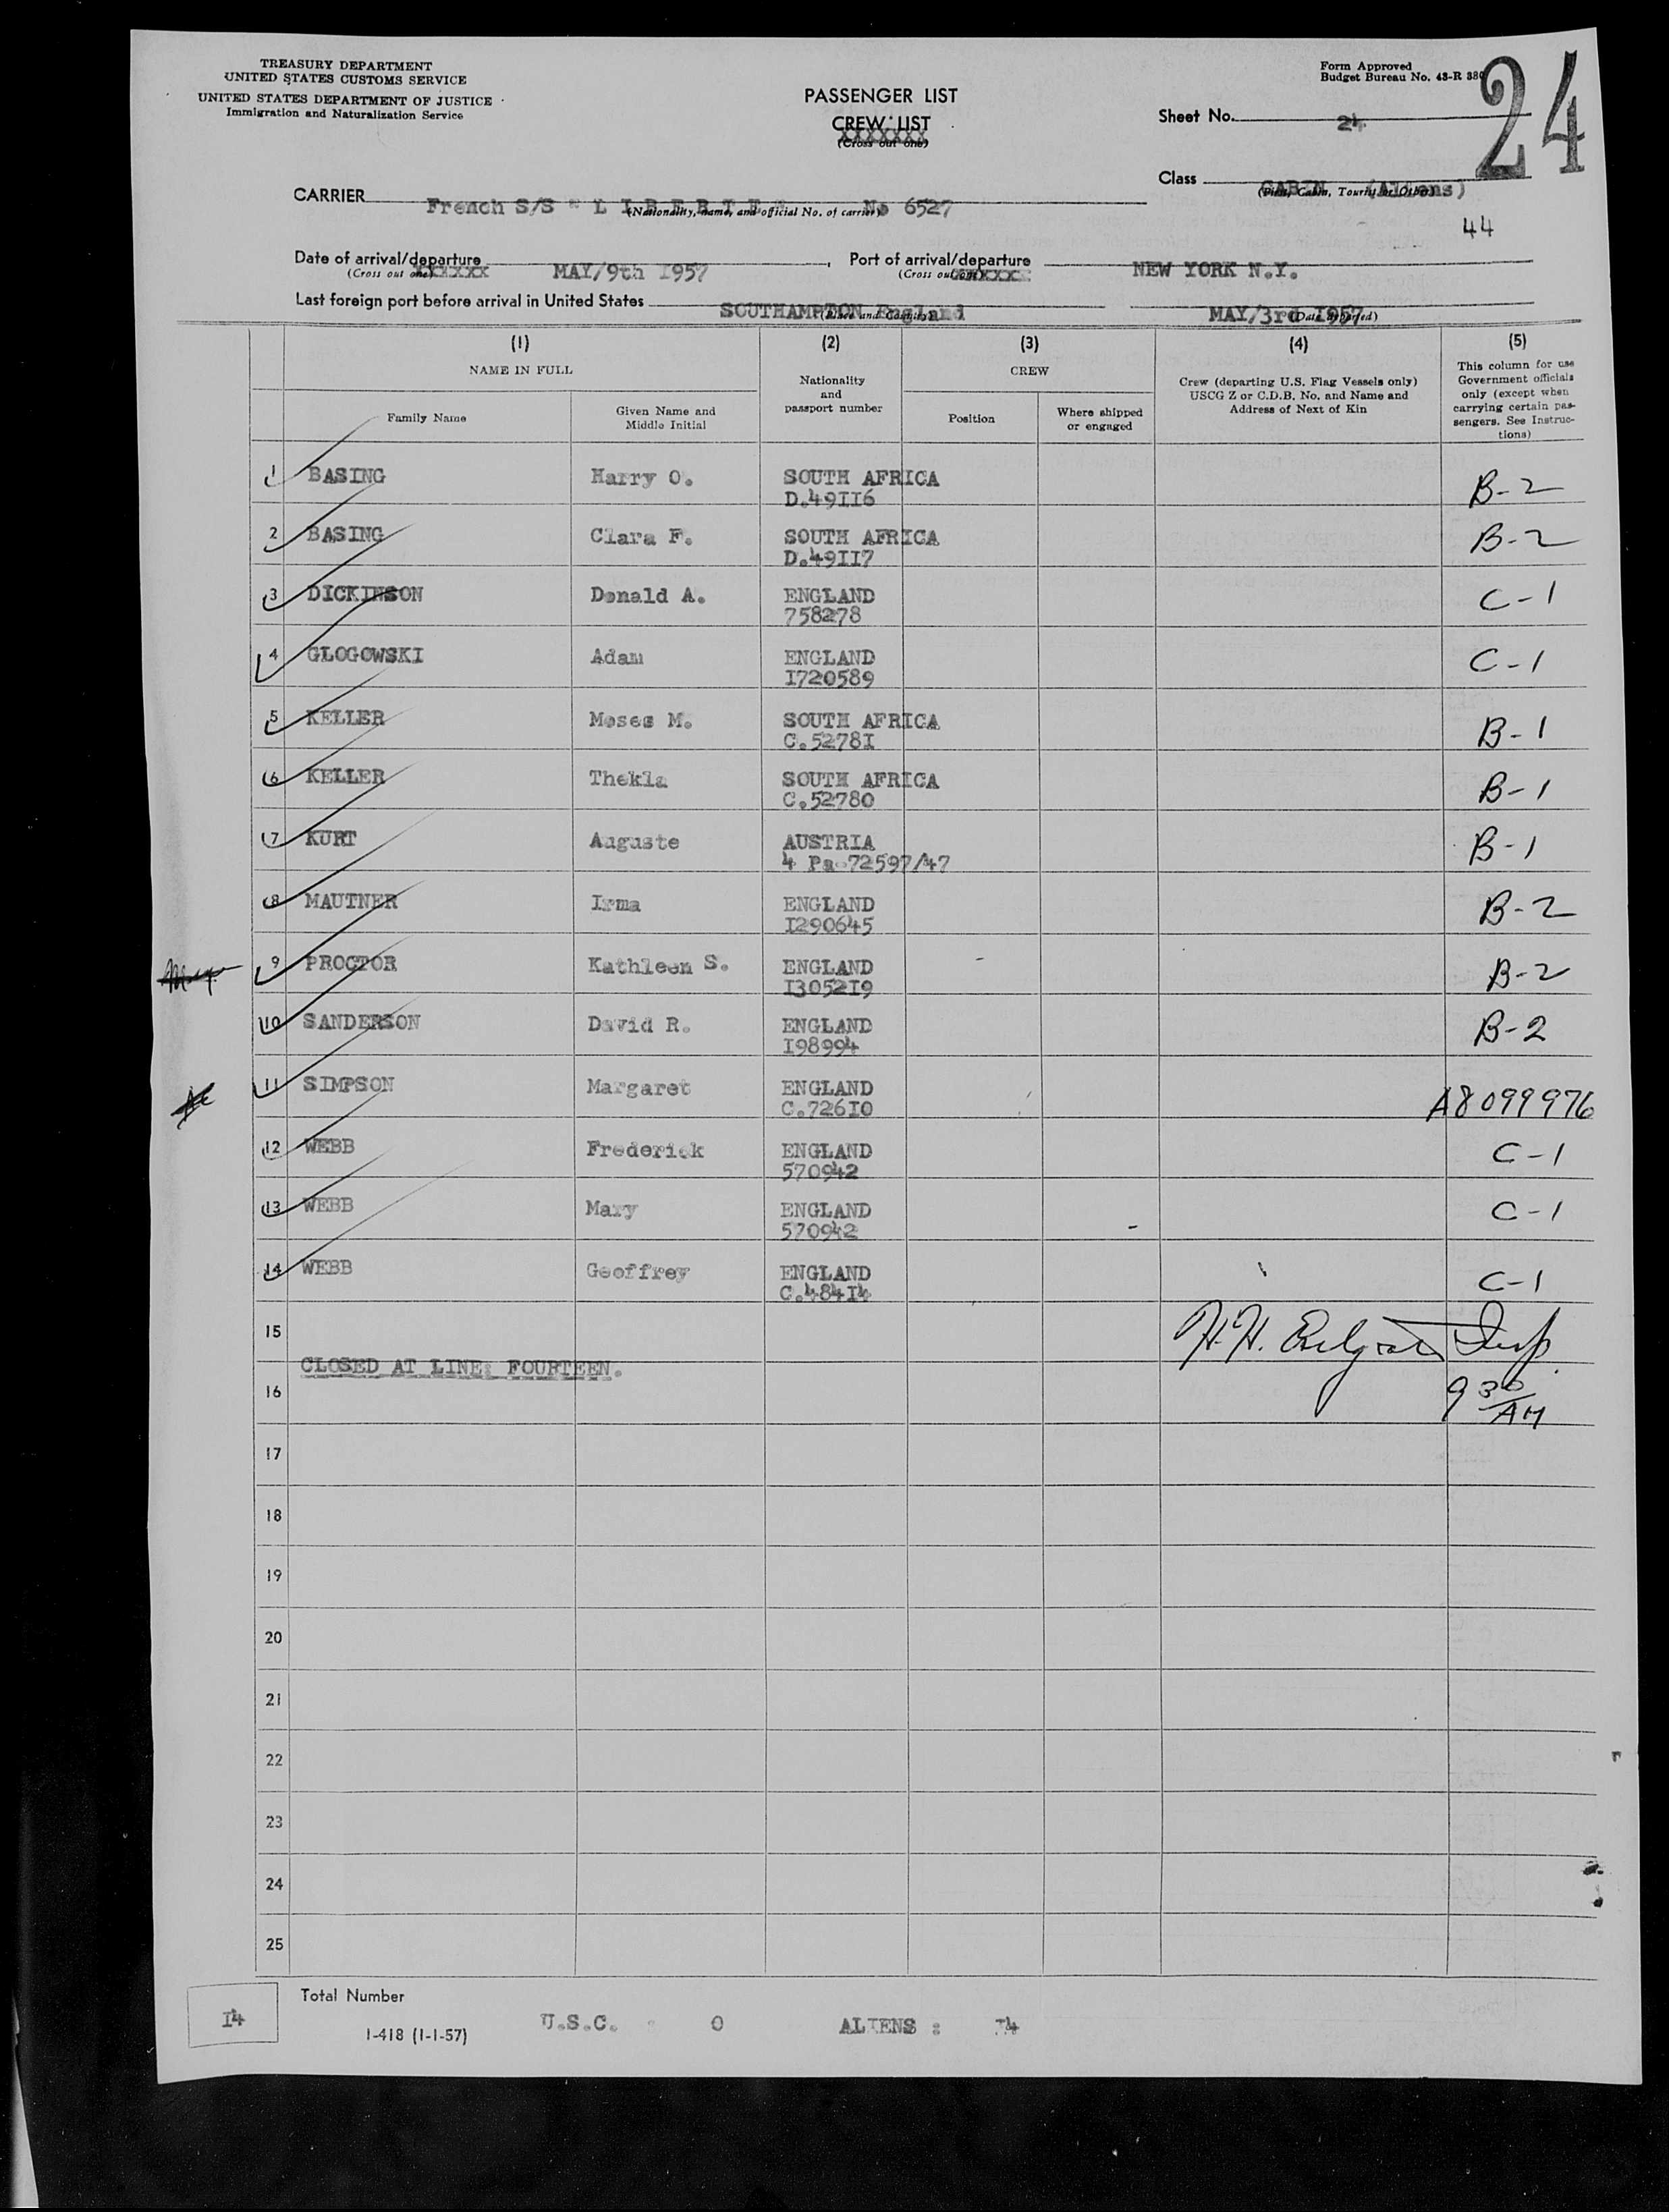 TREASURY DEPARTMENT
UNITED STATES CUSTOMS SERVICE
UNITED STATES DEPARTMENT OF JUSTICE
Immigration and Naturalization Service
PASSENGER LIST
CREW LIST
XXXXXXX
(Cross out one)
Form Approved
Budget Bureau No. 43-R 380
24
Sheet No. 24
Class CABIN (Aliens)
(First, Cabin, Tourist or Other)
CARRIER French S/S " L I B E R T E " No 6527
(Nationality, name, and official No. of carrier)
44
Date of arrival/departure MAY/9th 1957
(Cross out one) XXXXXX
Port of arrival/departure NEW YORK N.Y.
(Cross out one) XXXXXX
Last foreign port before arrival in United States SOUTHAMPTON England MAY/3rd 1957
(Place and Country) (Date departed)
(1) (2) (3) (4) (5)
NAME IN FULL
Family Name
Given Name and
Middle Initial
Nationality
and
passport number
CREW
Position
Where shipped
or engaged
Crew (departing U.S. Flag Vessels only)
USCG Z or C.D.B. No. and Name and
Address of Next of Kin
This column for use
Government officials
only (except when
carrying certain pas-
sengers. See Instruc-
tions)
1 BASING Harry O. SOUTH AFRICA B-2
D.49II6
2 BASING Clara F. SOUTH AFRICA B-2
D.49II7
3 DICKINSON Donald A. ENGLAND C-1
758278
4 GLOGOWSKI Adam ENGLAND C-1
I720589
5 KELLER Moses M. SOUTH AFRICA B-1
C.5278I
6 KELLER Thekla SOUTH AFRICA B-1
C.52780
7 KURT Auguste AUSTRIA B-1
4 Pa-72597/47
8 MAUTNER Irma ENGLAND B-2
I290645
9 PROCTOR Kathleen S. ENGLAND B-2
I3052I9
10 SANDERSON David R. ENGLAND B-2
I98994
11 SIMPSON Margaret ENGLAND A8099976
C.726I0
12 WEBB Frederick ENGLAND C-1
570942
13 WEBB Mary ENGLAND C-1
570942
14 WEBB Geoffrey ENGLAND C-1
C.484I4
15
H.H. Insp.
CLOSED AT LINE: FOURTEEN.
16
9 30 AM
17
18
19
20
21
22
23
24
25
I4
Total Number
I-418 (1-1-57)
U.S.C. : 0 ALIENS : I4